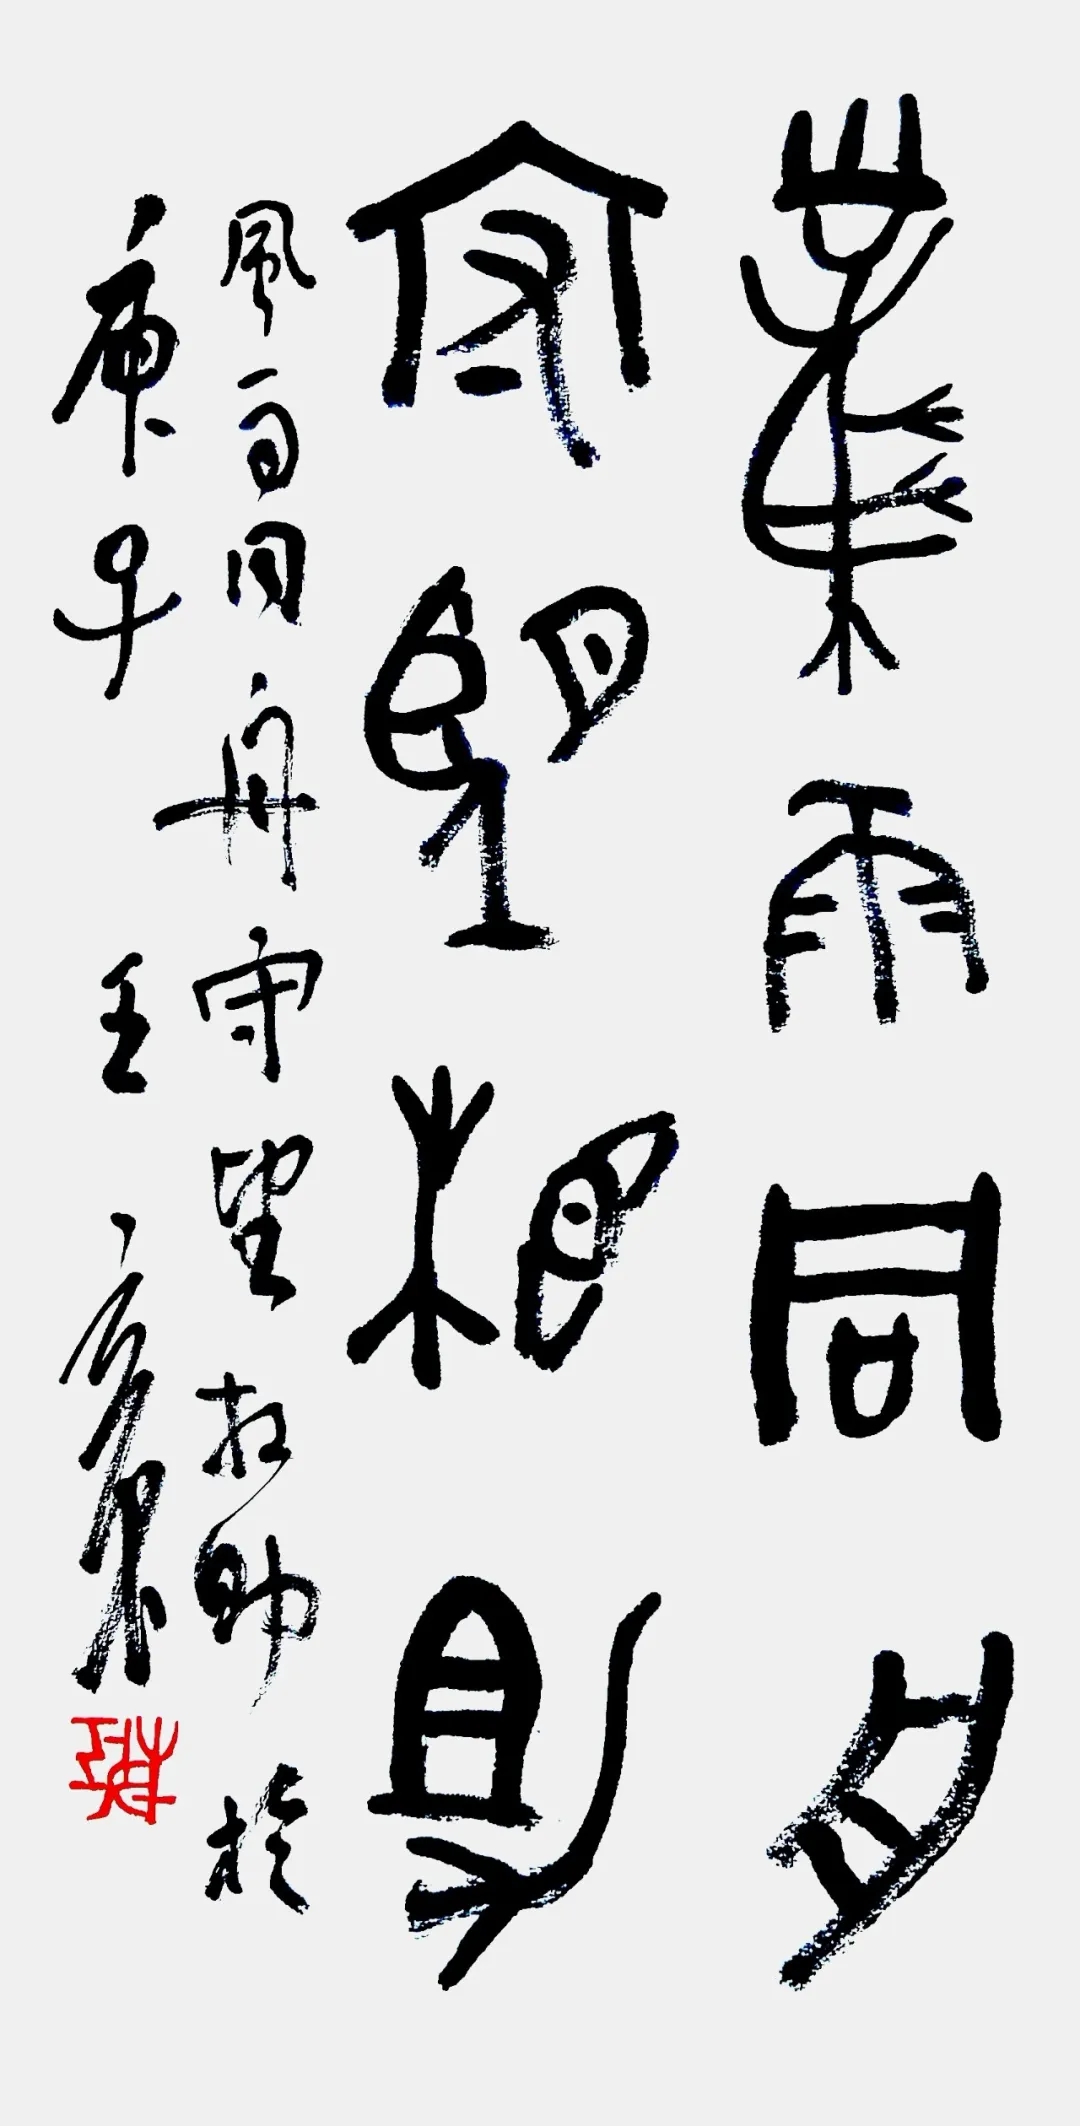 風雨同舟
守望相助
風雨同舟守望相助於
庚子王